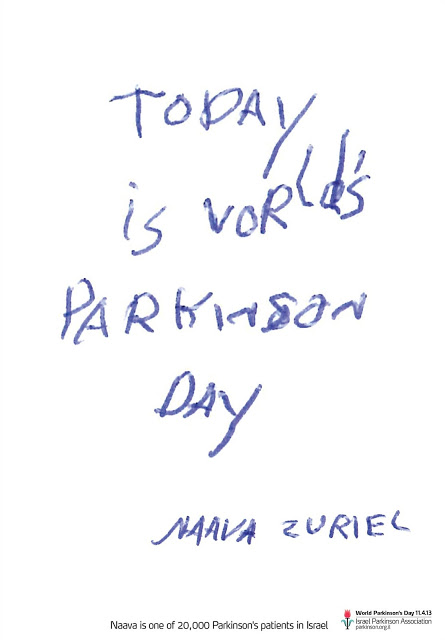 TODAY
is VORld's
PARKINSON
DAY
NAAVA ZURIEL
Naava is one of 20,000 Parkinson's patients in Israel
World Parkinson's Day 11.4.13
Israel Parkinson Association
parkinson.org.il